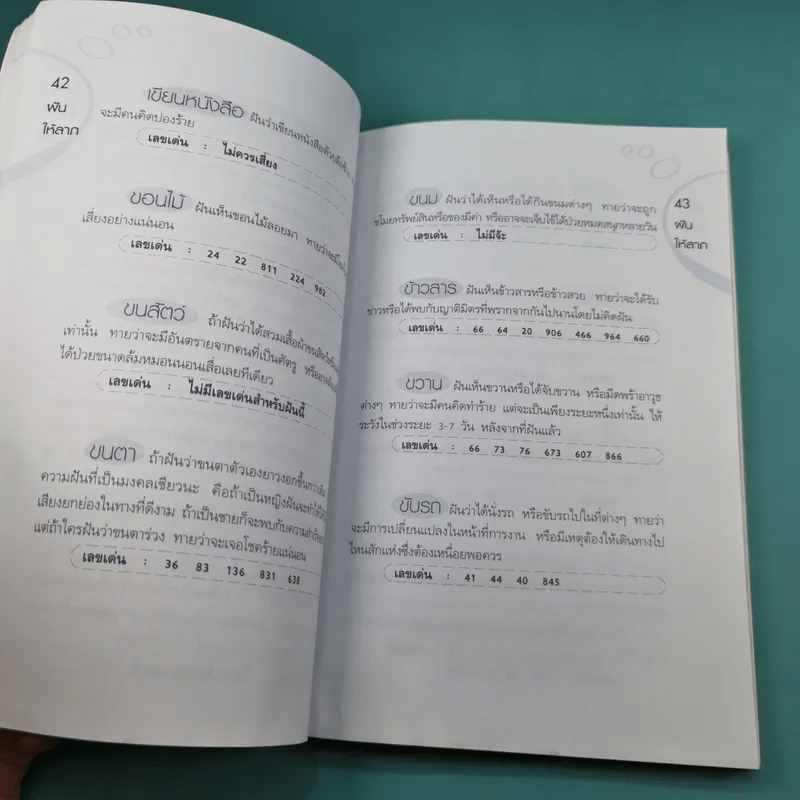 42
ฝัน
ให้ลาภ
เขียนหนังสือ ฝันว่าเขียนหนังสือด้วยมือซ้าย
จะมีคนคิดปองร้าย
เลขเด่น : ไม่ควรเสี่ยง
ขอนไม้ ฝันเห็นขอนไม้ลอยมา ทายว่าจะมีโชค
เสี่ยงอย่างแน่นอน
เลขเด่น : 24 22 811 224 982
ขนสัตว์ ถ้าฝันว่าได้สวมเสื้อผ้าขนสัตว์
เท่านั้น ทายว่าจะมีอันตรายจากคนที่เป็นศัตรู หรืออาจ
ได้ป่วยขนาดล้มหมอนนอนเสื่อเลยทีเดียว
เลขเด่น : ไม่มีเลขเด่นสำหรับฝันนี้
ขนตา ถ้าฝันว่าขนตาตัวเองยาวงอกขึ้นกว่าเดิม
ความฝันที่เป็นมงคลเชียวนะ คือถ้าเป็นหญิงฝันจะทำให้ได้
เสียงยกย่องในทางที่ดีงาม ถ้าเป็นชายก็จะพบกับความสำเร็จ
แต่ถ้าใครฝันว่าขนตาร่วง ทายว่าจะเจอโชคร้ายแน่นอน
เลขเด่น : 36 83 136 831 638
43
ฝัน
ให้ลาภ
ขนม ฝันว่าได้เห็นหรือได้กินขนมต่างๆ ทายว่าจะถูก
ขโมยทรัพย์สินหรือของมีค่า หรืออาจจะเจ็บไข้ได้ป่วยหมดสนุกหลายวัน
เลขเด่น : ไม่มีจ้ะ
ข้าวสาร ฝันเห็นข้าวสารหรือข้าวสวย ทายว่าจะได้รับ
ข่าวหรือได้พบกับญาติมิตรที่พรากจากกันไปนานโดยไม่คิดฝัน
เลขเด่น : 66 64 20 906 466 964 660
ขวาน ฝันเห็นขวานหรือได้จับขวาน หรือมีดพร้าอาวุธ
ต่างๆ ทายว่าจะมีคนคิดทำร้าย แต่จะเป็นเพียงระยะหนึ่งเท่านั้น ให้
ระวังในช่วงระยะ 3-7 วัน หลังจากที่ฝันแล้ว
เลขเด่น : 66 73 76 673 607 866
ขับรถ ฝันว่าได้นั่งรถ หรือขับรถไปในที่ต่างๆ ทายว่า
จะมีการเปลี่ยนแปลงในหน้าที่การงาน หรือมีเหตุต้องให้เดินทางไป
ไหนสักแห่งซึ่งต้องเหนื่อยพอควร
เลขเด่น : 41 44 40 845